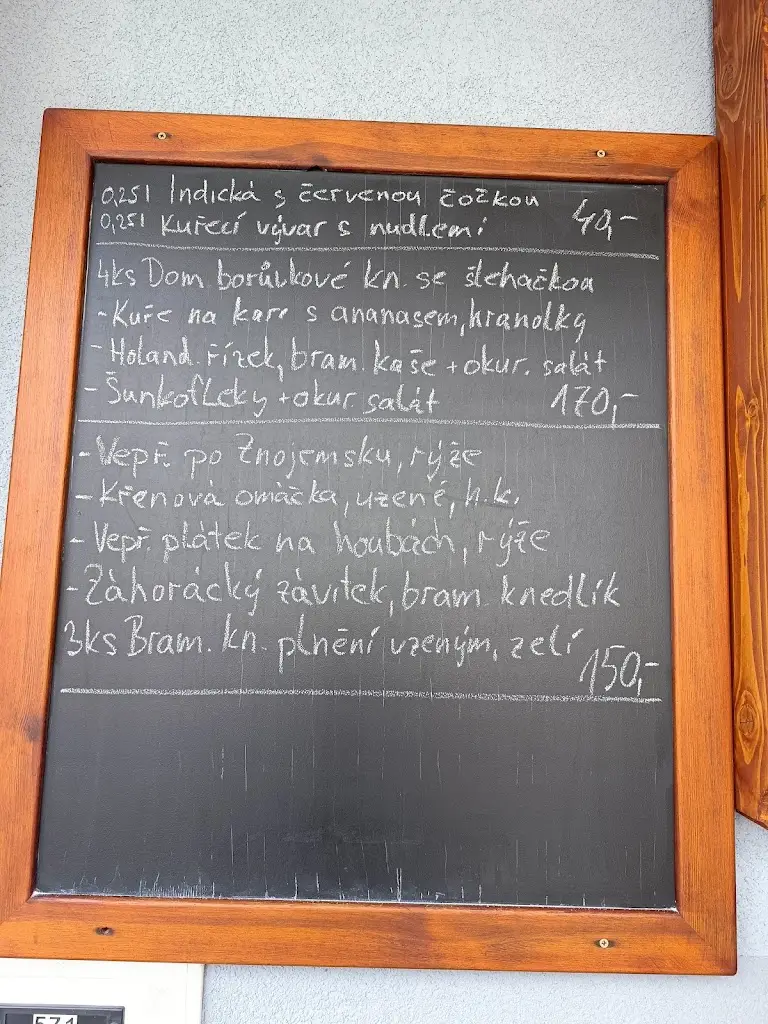 0,25l Indická s červenou čočkou
0,25l Kuřecí vývar s nudlemi 40,-
4ks Dom. borůvkové kn. se šlehačkou
- Kuře na kari s ananasem, hranolky
- Holand. řízek, bram. kaše + okur. salát
- Šunkofleky + okur. salát 170,-
- Vepř. po Znojemsku, rýže
- Křenová omáčka, uzené, h.k.
- Vepř. plátek na houbách, rýže
- Záhorácký závitek, bram. knedlík
3ks Bram. kn. plnění uzeným, zelí 150,-
571